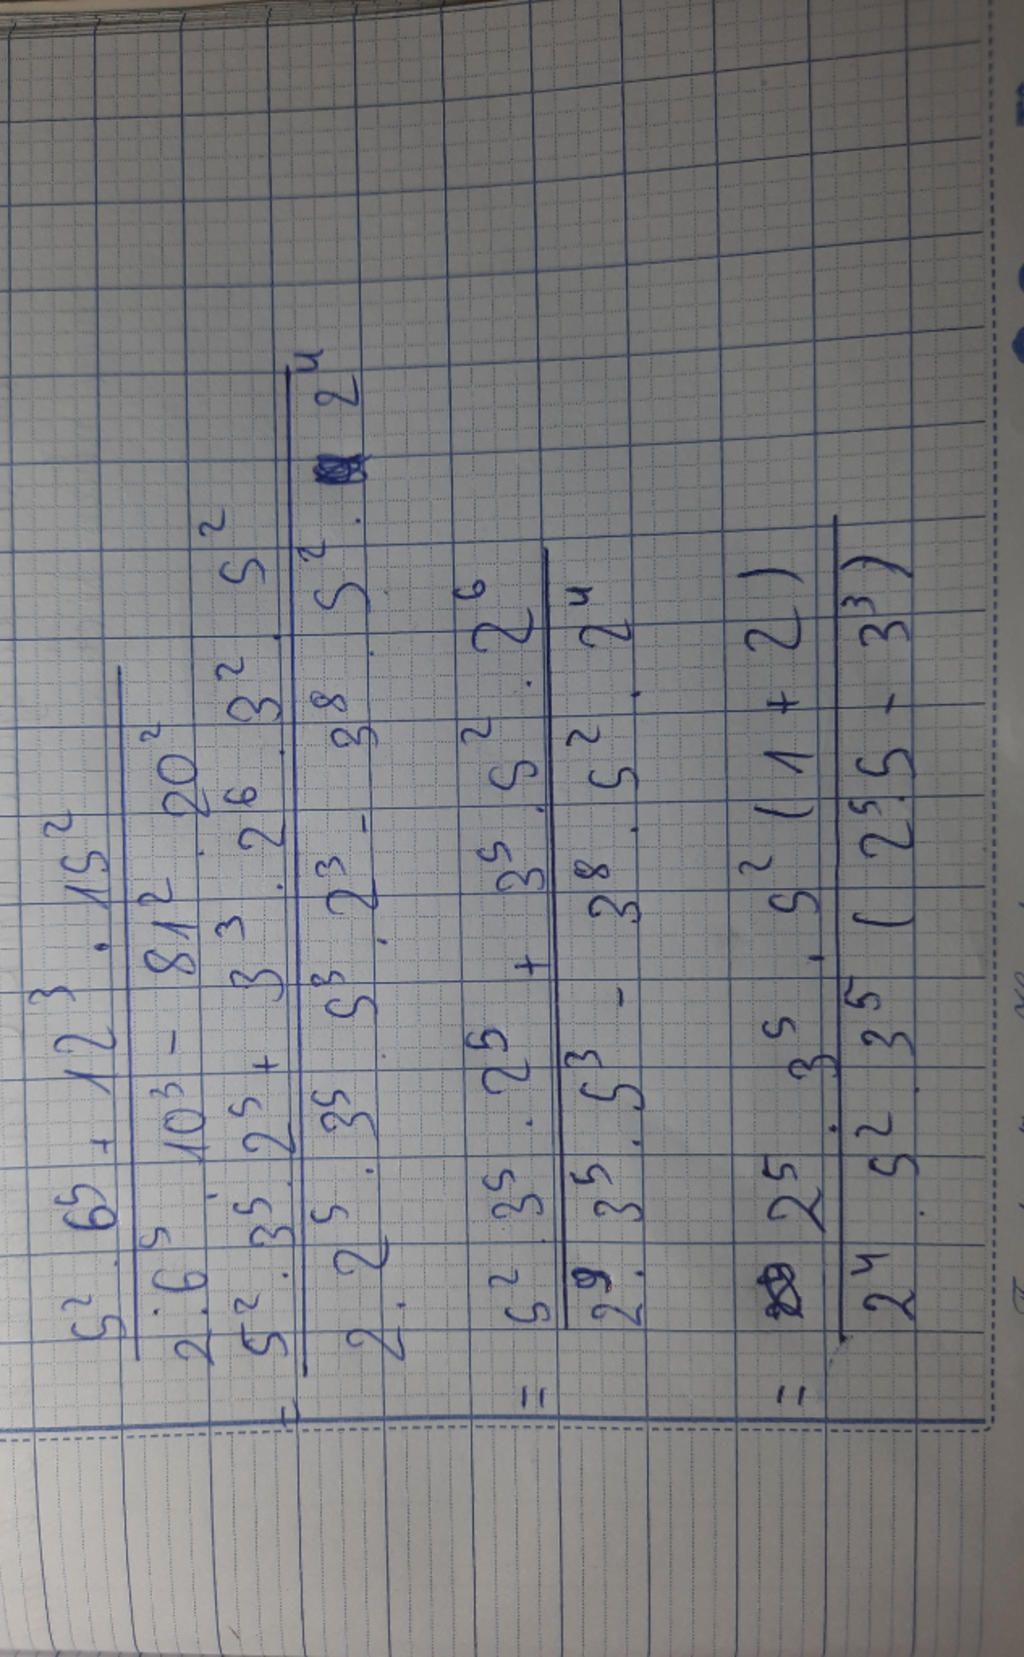 5² . 6⁵ + 12³ . 15²
2 . 6⁵ . 10³ - 81² . 20²
5² . 3⁵ . 2⁵ + 3³ . 2⁶ . 3² . 5²
2 . 2⁵ . 3⁵ . 5³ . 2³ - 3⁸ . 5² . 2⁴
= 5² . 3⁵ . 2⁵ + 3⁵ . 5² . 2⁶
2⁹ . 3⁵ . 5³ - 3⁸ . 5² . 2⁴
= 2⁵ . 3⁵ . 5² (1 + 2)
2⁴ . 5² . 3⁵ (2⁵.5 - 3³)